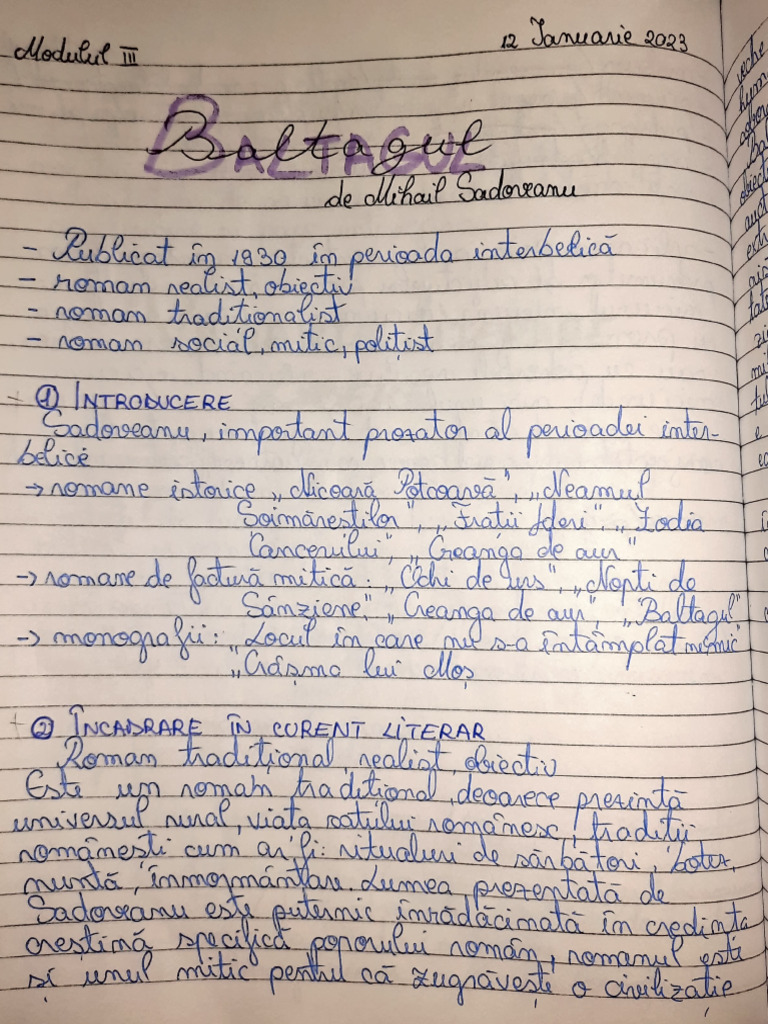 Modulul III
12 Ianuarie 2023
Baltagul
de Mihail Sadoveanu
- Publicat în 1930 în perioada interbelică
- roman realist, obiectiv
- roman traditionalist
- roman social, mitic, polițist
① INTRODUCERE
Sadoveanu, important prozator al perioadei inter-
belice
→ romane istorice „Nicoară Potcoavă”, „Neamul
Soimăreștilor”, „Frații Jderi”, „Zodia
Cancerului”, „Creanga de aur”
→ romane de factură mitică: „Ochi de urs”, „Nopti de
Sânziene”, „Creanga de aur”, „Baltagul”
→ monografii: „Locul în care nu s-a întâmplat nimic”
„Crâșma lui Moș
② ÎNCADRARE ÎN CURENT LITERAR
Roman tradițional, realist, obiectiv
Este un roman tradițional, deoarece prezintă
universul rural, viața satului românesc, tradiții
românești cum ar fi: ritualuri de sărbători, botez,
nuntă, înmormântare. Lumea prezentată de
Sadoveanu este puternic înrădăcinată în credința
creștină specifică poporului român, romanul este
și unul mitic pentru că zugrăvește o civilizație